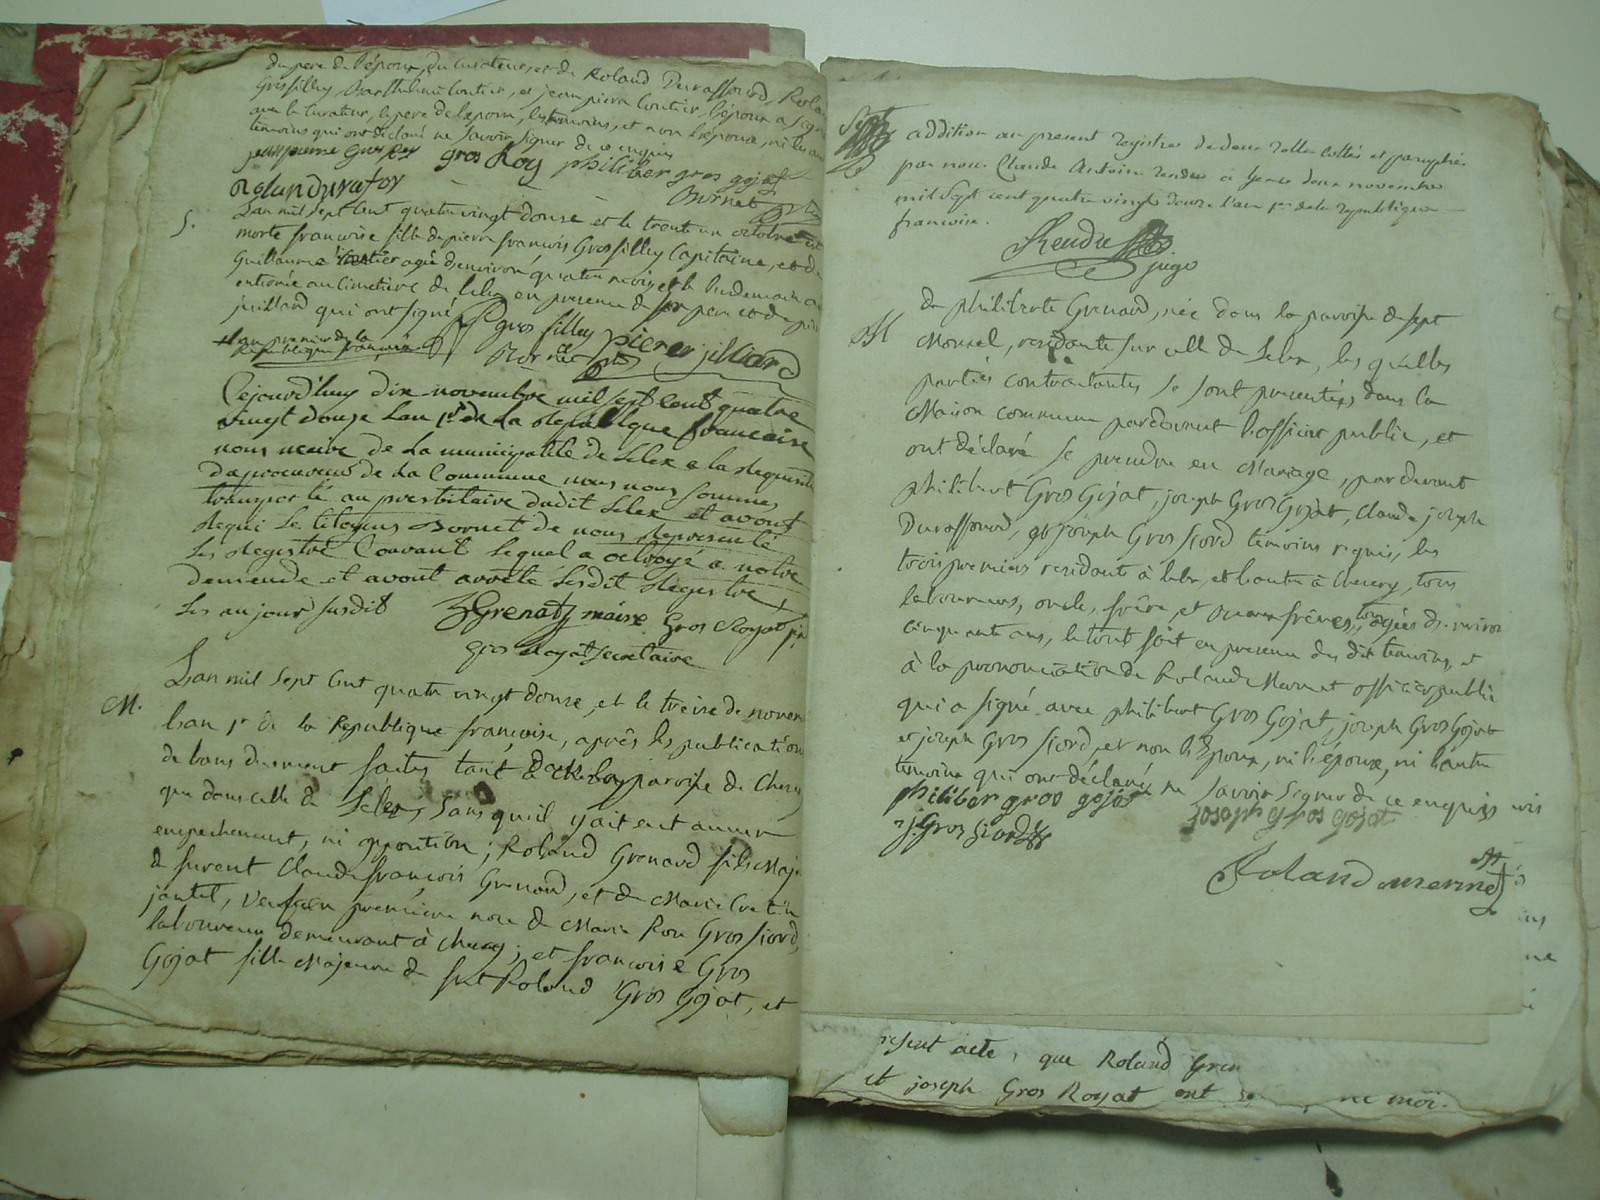 du pere de l'époux, du curateur, et de Roland Durassord, Rola
Grosfilley Barthelemi Contier, et jean pierre Contier, l'époux a signé
avec le curateur, le pere de l'epoux, les temoins, et non l'épouse, ni les au
temoins qui ont déclaré ne savoir signer de ce enquis
jean pierre gros gros Roy philiber gros gojat
Rolan durafor Bornet
S. L'an mil sept cent quatre vingt douse et le trent un octobre est
morte francoise fille de pierre françois Grosfilley Capitaine, et de
Guillaume agée d'environ quatre mois, et le lendemain a
enterrée au Cimetiere de Lelex en presence de son pere et de pierre
juillard qui ont signé
gros filley pierre jilliard
et l'an premier de la
République françoise
Bornet
Cejourd'huy dix novembre mil sept cent quatre
vingt douze L'an 1er de La Republique francaise
nous maire de La municipalité de Lelex a la Requisit
du procureur de La Commune nous nous sommes
transporté au presbitaire dudit Lelex et avont
Requi Le Citoyens Bornet de nous Represente
Les Registre Courant Lequel a octroyé a notre
demende et avont arrêté Lesdit Registre
Les an jour susdit Grenat maire Gros Royat
gros Royat secretaire
M. L'an mil sept cent quatre vingt douse, et le treise de novem
L'an 1er de la Republique françoise, après les publications
de bans duement faites tant dans la paroisse de Chesery
que dans celle de Lelex, sans qu'il y ait eut aucun
empechement, ni opposition; Roland Grenard fils Maje
de furent Claude françois Grenard, et de Marie
jantel, veuf en premiere noce de Marie Rose Gros fiord,
laboureur demeurant à Chesery; et francoise Gros
Gojat fille Majeure de fut Roland Gros Gojat, et
Sept
addition au present registre de deux rolle cottés et paraphés
par nous Claude Antoine Rendu a gex ce deux novembre
mil sept cent quatre vingt douze l'an 1er de la republique
francoise.
Rendu
juge
M
de philiberte Grenard, née dans la paroisse de sept
Moncel, residante sur celle de Lelex, les quelles
parties contractantes se sont presentées dans la
Maison commune pardevant l'officier public, et
ont déclaré se prendre en Mariage, pardevant
philibert Gros Gojat, joseph Gros Gojat, Claude joseph
Durassord, et joseph Gros fiord temoins requis, les
trois premiers residant à Lelex, et l'autre à Chesery, tous
laboureurs, oncle, frère, et beaux frères, tous agées d'environ
cinquante ans, le tout fait en presence des dits temoins, et
à la prononciation de Roland Mermet officier public
qui a signé avec philibert Gros Gojat, joseph Gros Gojat
et joseph Gros fiord, et non l'Epoux, ni l'épouse, ni l'autre
temoin qui ont déclaré ne savoir signer de ce enquis
philiber gros gojat joseph gros gojat
j. Gros fiord
Roland mermet
resent acte, que Roland Gren
et joseph Gros Royat ont ne moi.